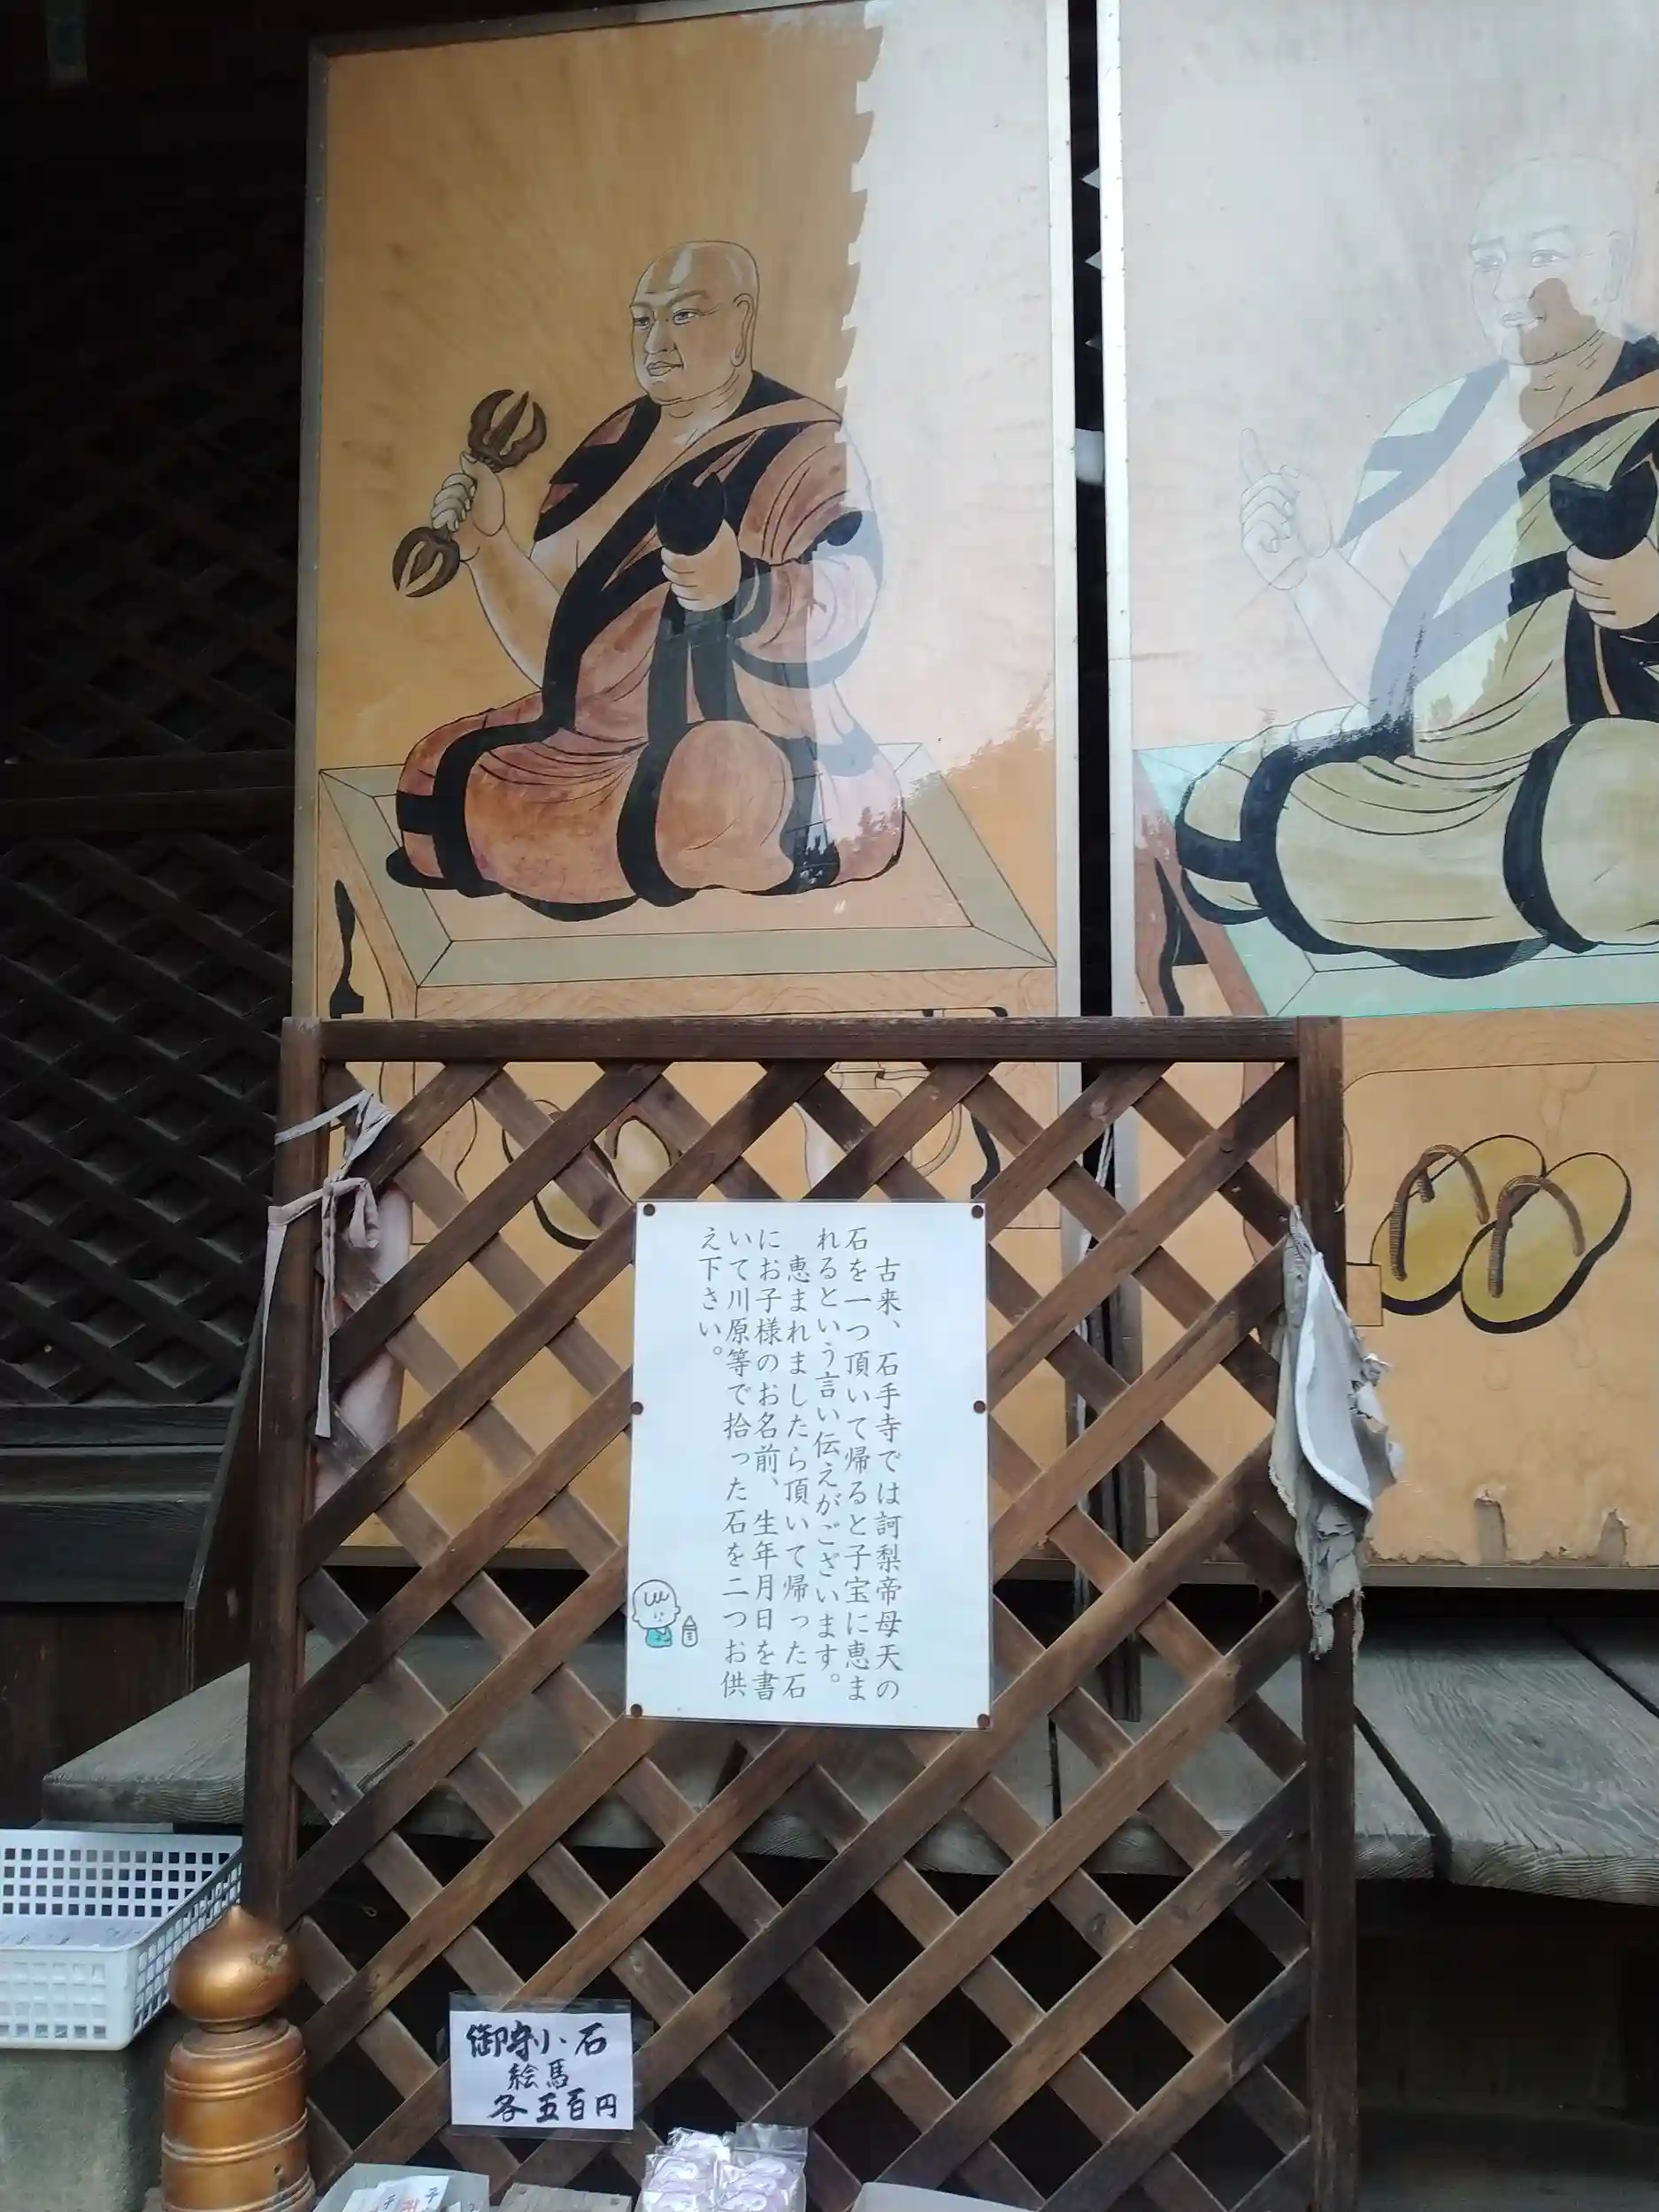 古来、石手寺では訶梨帝母天の
石を一つ頂いて帰ると子宝に恵ま
れるという言い伝えがございます。
恵まれましたら頂いて帰った石
にお子様のお名前、生年月日を書
いて川原等で拾った石を二つお供
え下さい。
御守小石
絵馬
各五百円